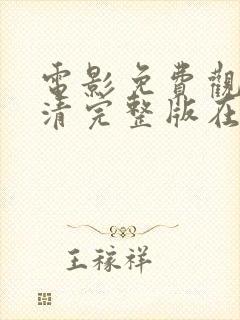 電影免費觀
清完整版在
王稼祥